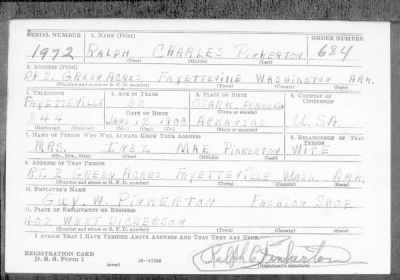 SERIAL NUMBER 1. NAME (Print) ORDER NUMBER
1972 RALPH CHARLES PINKERTON 684
(First) (Middle) (Last)
2. ADDRESS (Print)
Rt. 2 GREEN ACRES FAYETTEVILLE WASHINGTON ARK.
(Number and street or R. F. D. number) (Town) (County) (State)
3. TELEPHONE 4. AGE IN YEARS 5. PLACE OF BIRTH 6. COUNTRY OF CITIZENSHIP
FAYETTEVILLE OZARK, FRANKLIN
DATE OF BIRTH (Town or county)
844 ARKANSAS U.S.A.
(Exchange) (Number) (Mo.) (Day) (Yr.) (State or country)
7. NAME OF PERSON WHO WILL ALWAYS KNOW YOUR ADDRESS 8. RELATIONSHIP OF THAT PERSON
MRS. INEZ MAE PINKERTON WIFE
(Mr., Mrs., Miss) (First) (Middle) (Last)
9. ADDRESS OF THAT PERSON
RT. 2 GREEN ACRES FAYETTEVILLE WASH. ARK.
(Number and street or R. F. D. number) (Town) (County) (State)
10. EMPLOYER'S NAME
GUY W. PINKERTON FASHION SHOP
11. PLACE OF EMPLOYMENT OR BUSINESS
402 WEST DICKERSON
(Number and street or R. F. D. number) (Town) (County) (State)
I AFFIRM THAT I HAVE VERIFIED ABOVE ANSWERS AND THAT THEY ARE TRUE.
REGISTRATION CARD
D. S. S. Form 1 (over) 16-17105 Ralph C Pinkerton
(Registrant's signature)